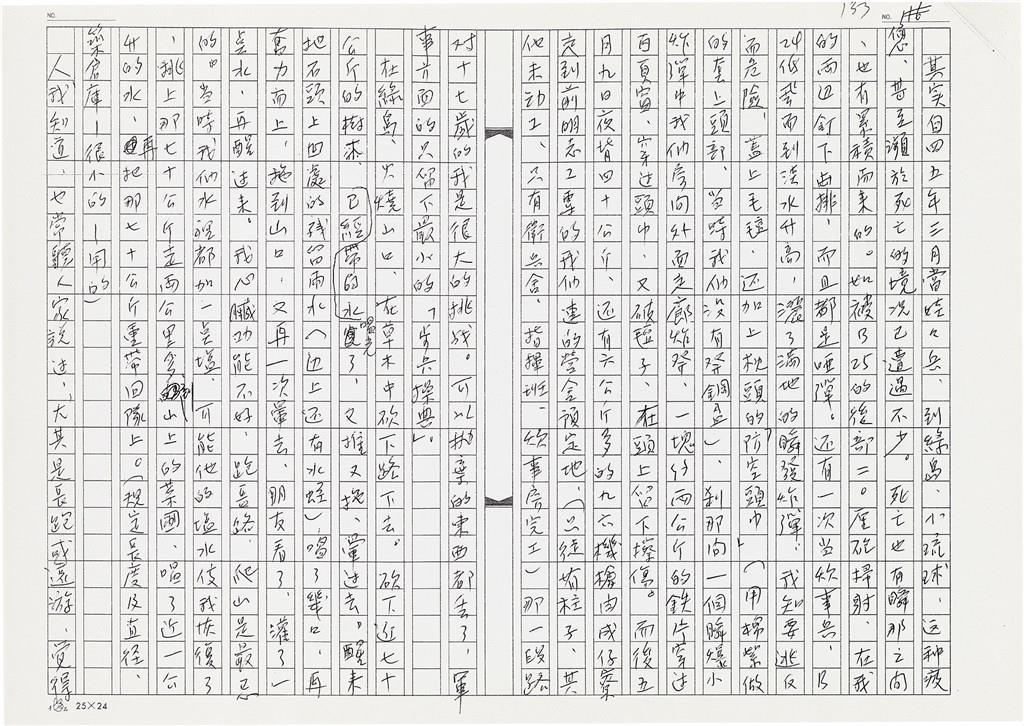 133
NO.
NO.
其实自四五年三月當娃々兵、到綠島、小琉球、这种疲
憊、昔至瀕於死亡的境况已遭遇不少。死亡也有瞬那之间
、也有累積而来的。如被B25的後部二〇厘砲掃射、在我
的两边钉下两排、而且都是哑彈。还有一次当炊事兵、B
24低飞而到淡水升高、灑了满地的瞬發炸彈、我知要逃反
而危險、蓋上毛毯、还加上枕頭的「防空頭巾」(用棉絮做
的套上頭部、当時我们没有發鋼盔)刹那间一個瞬爆小
炸彈中我们房间外面走廊炸發、一塊约两公斤的鉄片穿过
百頁窗、穿过頭巾、又破毯子、在頭上留下擦傷。而後五
月九日夜背四十公斤、还有六公斤多的九六機槍由成仔寮
走到前明志工專的我们連的營舍預定地、(只徒有柱子、其
他未动工、只有衛兵舍、指揮班、炊事房完工)那一段路
对十七歲的我是很大的挑战。可以抛棄的東西都丢了、軍
事方面的只留下最小的「步兵操典」。
在綠島、火燒山口、在草木中砍下路下去。砍下近七十
公斤的樹求、已經帶的水喝光了、又推又挽、暈过去。醒来
地石頭上凹處的残留雨水(边上还有水蛭)、喝了幾口、再
奮力而上、拖到山口、又再一次暈去、朋友看了、灌了一
点水、再醒过来。我心臟功能不好、跑長路、爬山是最忌
的。当時我们水裡都加一点塩、可能他的塩水使我恢復了
、挑上那七十公斤走两公里多到山上的菜園、喝了近一公
升的水、再把那七十公斤重帶回隊上。(規定長度及直径、
築倉庫—很小的—用的)
人我知道、也常聽人家說过、尤其是長跑或遠游、覚得
25×24